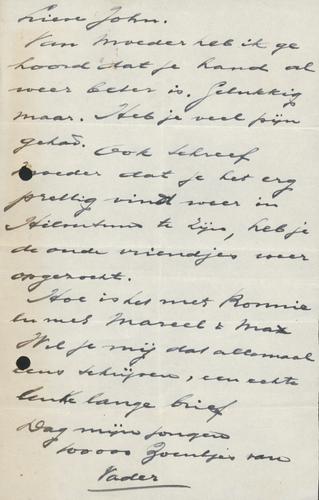 Lieve John.
Van Moeder heb ik ge
hoord dat je hand al
weer beter is. Gelukkig
maar. Heb je veel pijn
gehad.
Ook schreef
Moeder dat je het erg
prettig vindt weer in
Hilversum te zijn, heb je
de oude vriendjes weer
opgezocht.
Hoe is het met Ronnie
en met Marcel & Max
Wil je mij dat allemaal
eens schrijven, een echte
leuke lange brief
Dag mijn jongen
10000 Zoentjes van
Vader